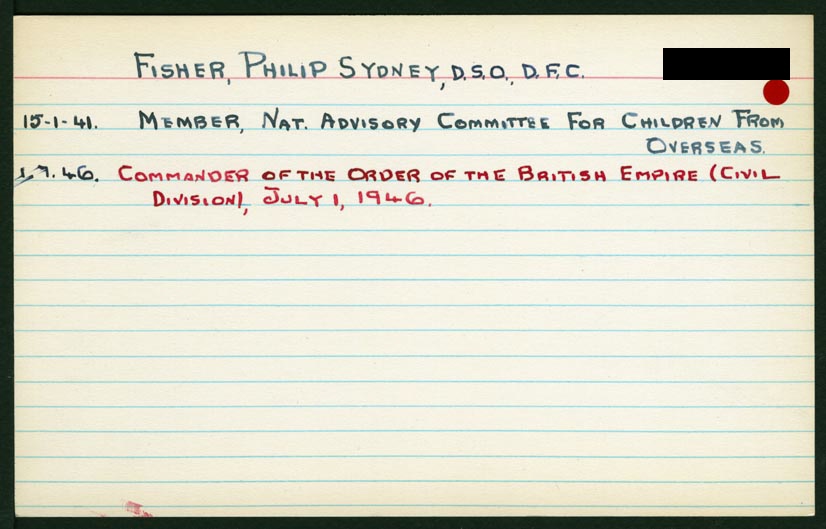 FISHER, PHILIP SYDNEY, D.S.O., D.F.C.
15-1-41. MEMBER, NAT. ADVISORY COMMITTEE FOR CHILDREN FROM
OVERSEAS.
1.7.46. COMMANDER OF THE ORDER OF THE BRITISH EMPIRE (CIVIL
DIVISION), JULY 1, 1946.